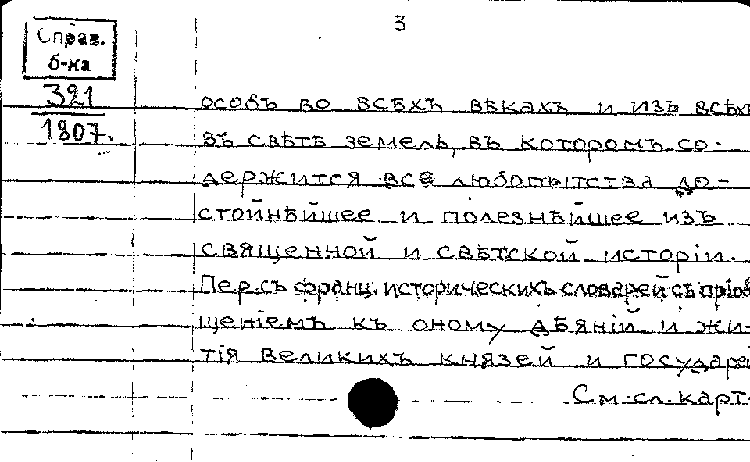 3
Справ.
б-ка
321
1807.
особъ во всѣхъ вѣкахъ и изъ всѣхъ
въ свѣтѣ земель, въ которомъ со-
держится все любопытства до-
стойнѣйшее и полезнѣйшее изъ
священной и свѣтской исторіи.
Пер. съ франц. историческихъ словарей съ пріоб
щеніемъ къ оному дѣяній и жи-
тія великихъ князей и государей
См. сл. карт.